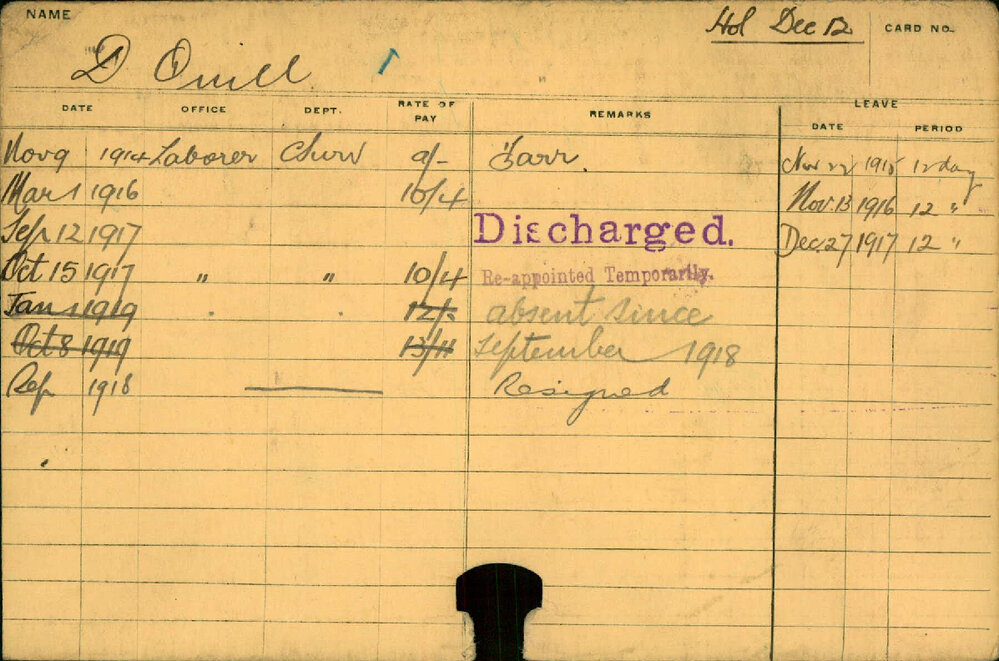 NAME
Hol Dec 12
CARD NO.
D Quill
DATE OFFICE DEPT. RATE OF PAY REMARKS LEAVE
DATE PERIOD
Nov 9 1914 Laborer 9/- Nov 1915 12 day
Mar 1 1916 10/4 Nov. 13 1916 12 "
Sep 12 1917 Discharged. Dec. 27 1917 12 "
Oct 15 1917 " " 10/4 Re-appointed Temporarily.
Jan 1 1919 " " 12/- absent since
Oct 8 1919 13/11 September 1918
Sep 1918 Resigned